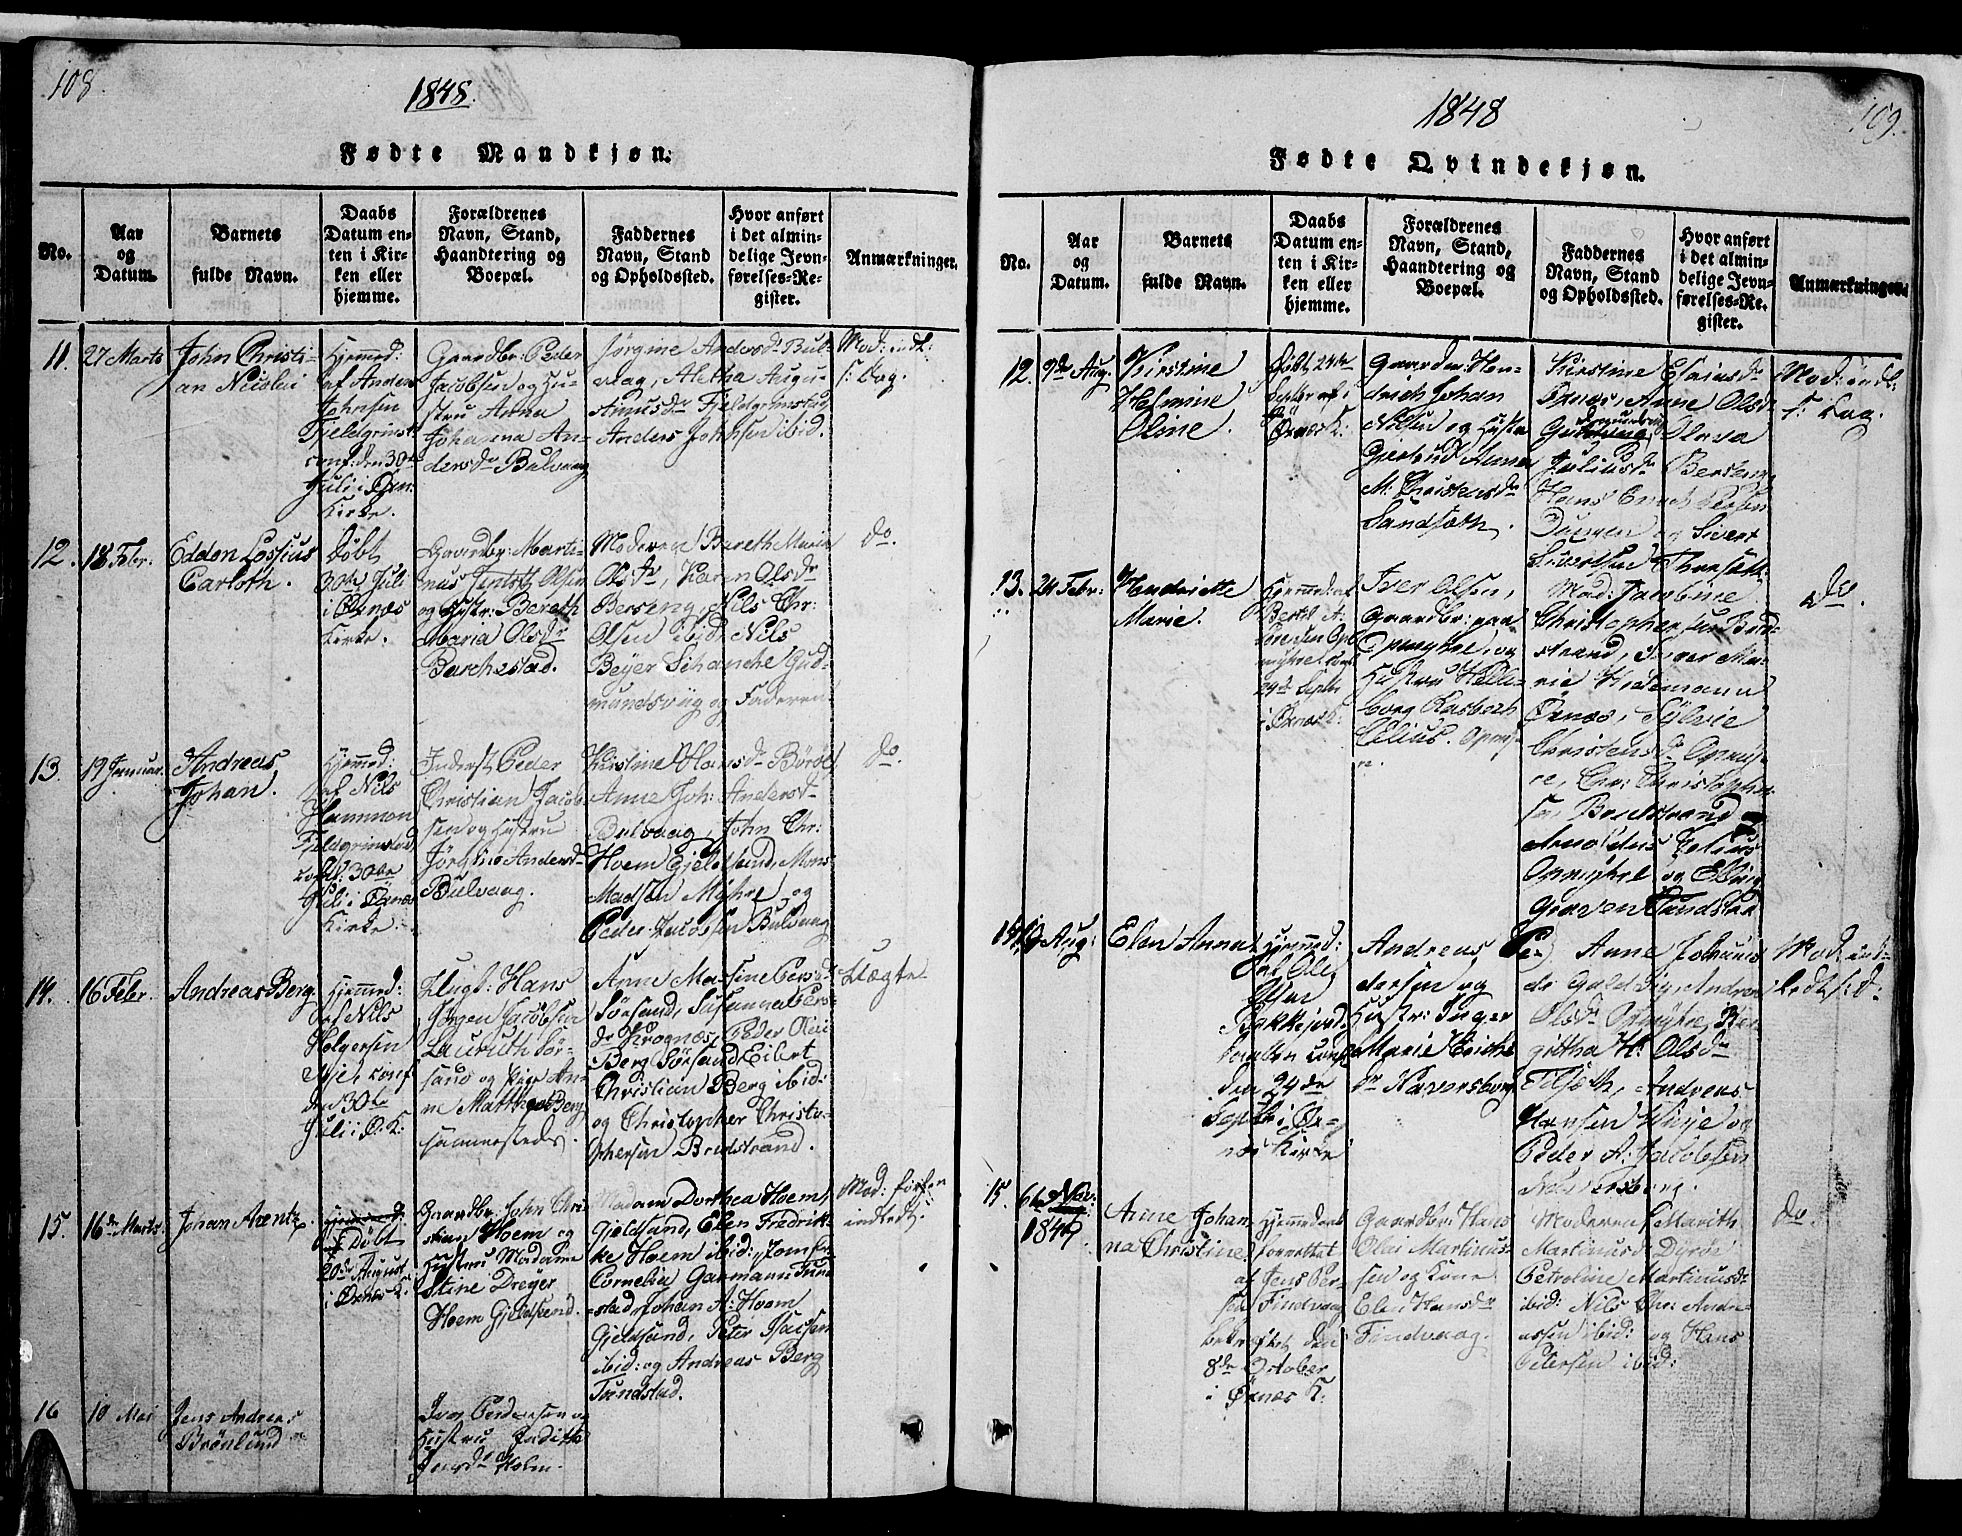 108.
1848.
Fødte Mandkjøn.
No.
Aar
og
Datum.
Barnets
fulde Navn.
Daabs
Datum en-
ten i Kir-
ken eller
hjemme.
Forældrenes
Navn, Stand,
Haandtering og
Boepæl.
Faddernes
Navn, Stand
og Opholdssted.
Hvor anført
i det almin-
delige Jevn-
førelses-Re-
gister.
Anmærkninger.
11.
27 Marts
John Christi-
an
Hjemmed:
af Anders
Johnsen
Fjeldgrimst:
conf: den 30te
Juli i Ørn:
Kirke.
Gaardbr: Peder
Jacobsen og Hu-
stru Anna
Johanna An-
dersdr Bulvaag
Jørgine Andersdr Bul-
vaag, Aletha Augu-
stinusdr Fjeldgrimstad
Anders Johnsen ibid.
Mod: indt:
f: Dag.
12.
18 Febr.
Edden Lossius
Carloth.
Døbt
30te Juli
i Ørnæs
Kirke.
Gaardbr: Marti-
nus Olsen
og Hustr: Bereth
Maria Olsdr
Barchestad.
Moderen Bareth Maria
Olsdr, Karen Olsdr
Berseng, Nils Chr:
Olsen ibid: Nils
Beyer Schanche Gud-
mundsvig og Faderen
do.
13.
19 Januar
Andreas
Johan.
Hjemmed:
af Nils
Hammon
Fjeldgrimstad
conf: 30te
Juli i Ørnæs
Kirke.
Inderst Peder
Christian Jacob-
sen og Hustru
Jørgine Andersdr
Bulvaag.
Kirstine Hansdr Børøe
Anne Joh: Andersdr
Bulvaag, John Chr:
Hoem Gjeldsund, Mons
Madsen Myhre og
Peder Jacobsen Bulvaag
do.
14.
16 Febr.
Andreas Berg
Hjemmed:
af Nils
Holgersen
conf
den 30te
Juli i Ø. K:
Ungk: Hans
Jørgen Jacobsen
Lauruth Sør-
sand og Pige An-
ne Matthea Berg
sammesteds.
Anne Massine Persdr
Sørsand, Susanna Pers-
dr Krognæs, Peder Olai
Berg Sørsand, Eilert
Christian Berg ibid:
og Christopher Christo-
phersen Bredstrand.
Uægte
15.
16de Marts
Johan Arentz.
Døbt
20de August
i Ørnæs K:
Gaardbr: John Chri-
stian Hoem og
Hustru Madame
Stine Dreyer
Hoem Gjeldsund.
Madam Dorthea Hoem
Gjeldsund, Elen Fredrik-
ke Hoem ibid: Jomfru
Cornelia Garmann Tund-
stad, Johan A: Hoem
Gjeldsund, Peter Isaksen
ibid: og Andreas Berg
Tundstad.
Mod: forfen
indledt.
16
10 Mai
Jens Andreas
Brønlund
Iver Pedersen og
Hustru Inditte
Jensdr Holm.
1848
109.
Fødte Qvindekjøn.
No.
Aar
og
Datum.
Barnets
fulde Navn.
Daabs
Datum en-
ten i Kir-
ken eller
hjemme.
Forældrenes
Navn, Stand,
Haandtering og
Boepæl.
Faddernes
Navn, Stand
og Opholdssted.
Hvor anført
i det almin-
delige Jevn-
førelses-Re-
gister.
Anmærkninger.
12.
9de Aug.
Kirstine
Helmine
Oline.
Døbt 24de
Septbr af i
Ørnæs K:
Gaardm: Hen-
drich Johan
Nilsen og Hustru
Giertrud Anne
M: Christensdr
Sandsæth.
Kirstine Elaiusdr
Opnæs, Anne Olsdr
Olava
Juliusdr Berseng
Hans Enoch
og Sivert
Sivertsen
Mod: indt:
f: Dag.
13.
24 Febr:
Hendriette
Marie.
Hjemmed: af
Bertel A:
Opl
myhre conf
24de Septbr
i Ørnæs K:
Iver Olsen,
Gaardbr: paa
Opmyhre, og
Hustru Helle-
borg Kasbech
Celius. Opmyh-
re.
Mad: Jacobine
Christophersen Bred-
strand, Inger Ma-
rie Heitmann
Ørnæs, Sylvie
Christensdr Opmyh-
re, Chr: Christopher-
sen Bredstrand
Arnoldus Celius
Opmyhre og Elling
Graven Tundstad
do.
14.
19 Aug:
Elen Anna
Hjemmed:
af Ole
Olsen
Bakkejord,
Daaben conf
den 24de
Septbr i Ør-
næs Kirke
Andreas Pe-
dersen og
Hustr: Inger
Marie Erichs-
dr Haversborg
Anne Johannes-
dr Andrea
Olsdr Opmyhre, Ber-
githa H: Olsdr
Tilseth, Andreas
Hansen og
Peder A: Jacobsen
Haversborg.
Mod: ind-
ledt f: D:
15.
6te Nov:
1847
Anne Johan
na Christine
Hjemmedøbt
forrettet
af Jens Per-
sen Findvaag
bekræftet den
8de October
i Ørnæs K:
Gaardbr: Hans
Olai Martinus-
sen og Kone
Elen Hansdr
Findvaag.
Moderen Marith
Martinusdr Dyrøe
Petroline Martinusdr
ibid: Nils Chr: Andre-
assen ibid: og Hans
Petersen ibid:
do.